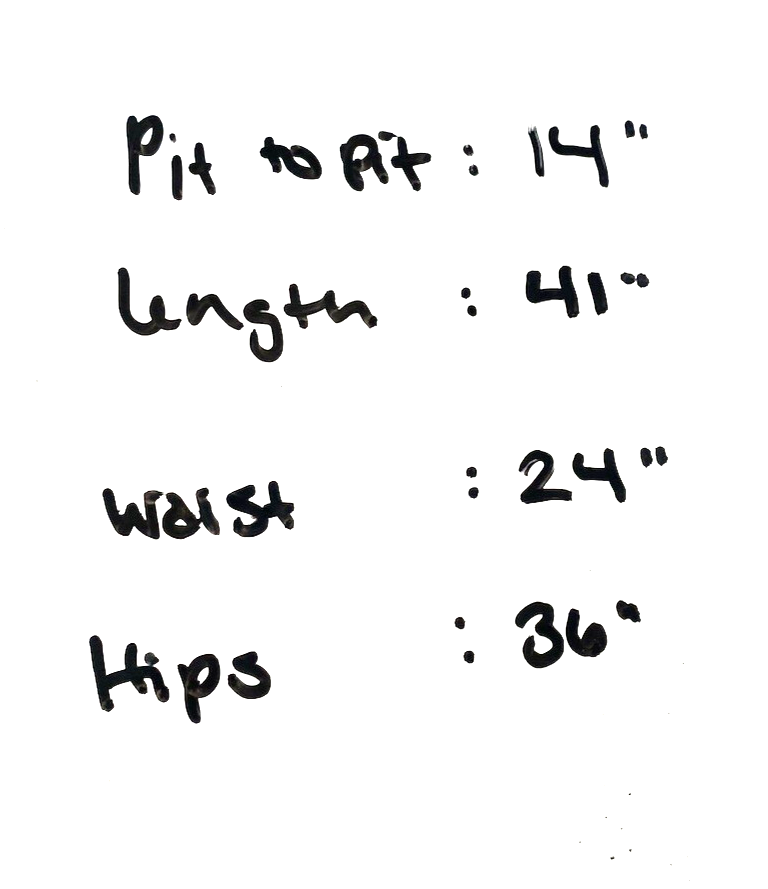 Pit to Pit : 14"
Length : 41"
Waist : 24"
Hips : 36"